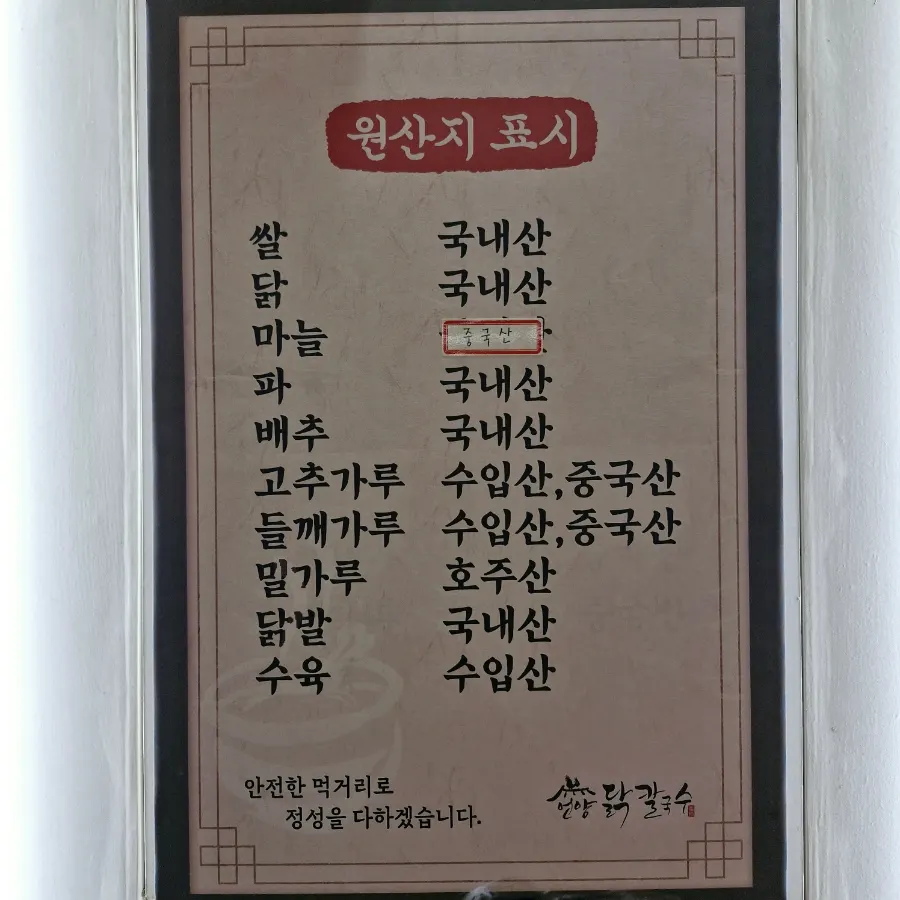 원산지 표시
쌀 국내산
닭 국내산
마늘 중국산
파 국내산
배추 국내산
고추가루 수입산,중국산
들깨가루 수입산,중국산
밀가루 호주산
닭발 국내산
수육 수입산
안전한 먹거리로
정성을 다하겠습니다.
언양 닭칼국수